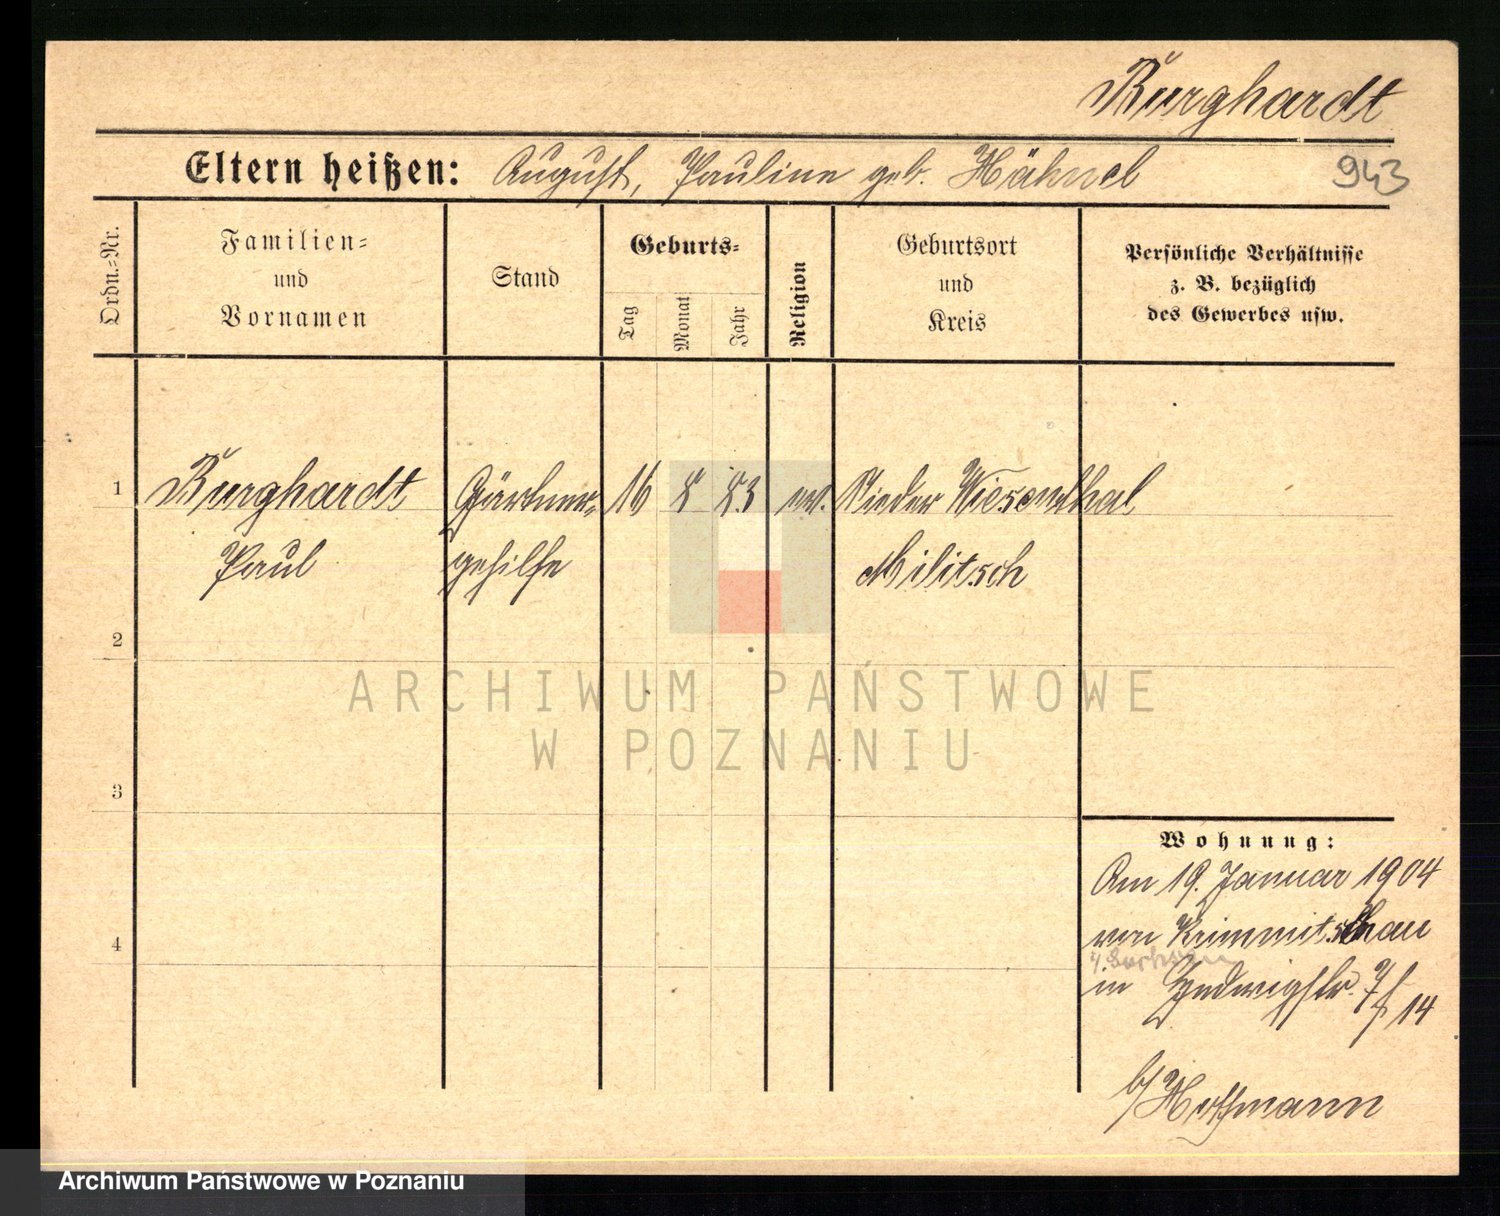 Burghardt
Eltern heißen: August, Pauline geb. Hähnel
943
Ordn.-Nr.
Familien-
und
Vornamen
Stand
Geburts-
Tag
Monat
Jahr
Religion
Geburtsort
und
Kreis
Persönliche Verhältnisse
z. B. bezüglich
des Gewerbes usw.
1 Burghardt Gärtner- 16 8 83 ev. Nieder Wiesenthal
Paul gehilfe Militsch
2
ARCHIWUM PAŃSTWOWE
W POZNANIU
3
Wohnung:
Am 19. Januar 1904
von Krimmitschau
4
in
14
b/ Hoffmann
Archiwum Państwowe w Poznaniu